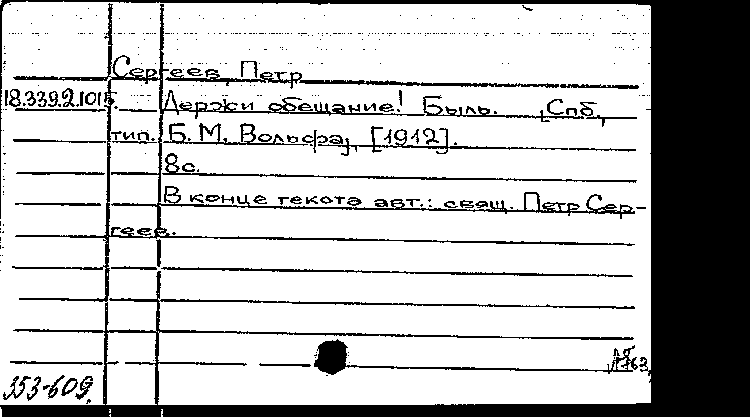 Сергеев, Петр
18.339.2.1015. Держи обещание! Быль. [Спб.,
тип. Б.М. Вольфа], [1912].
8с.
В конце текста авт.: свящ. Петр Сер-
геев.
353-609.